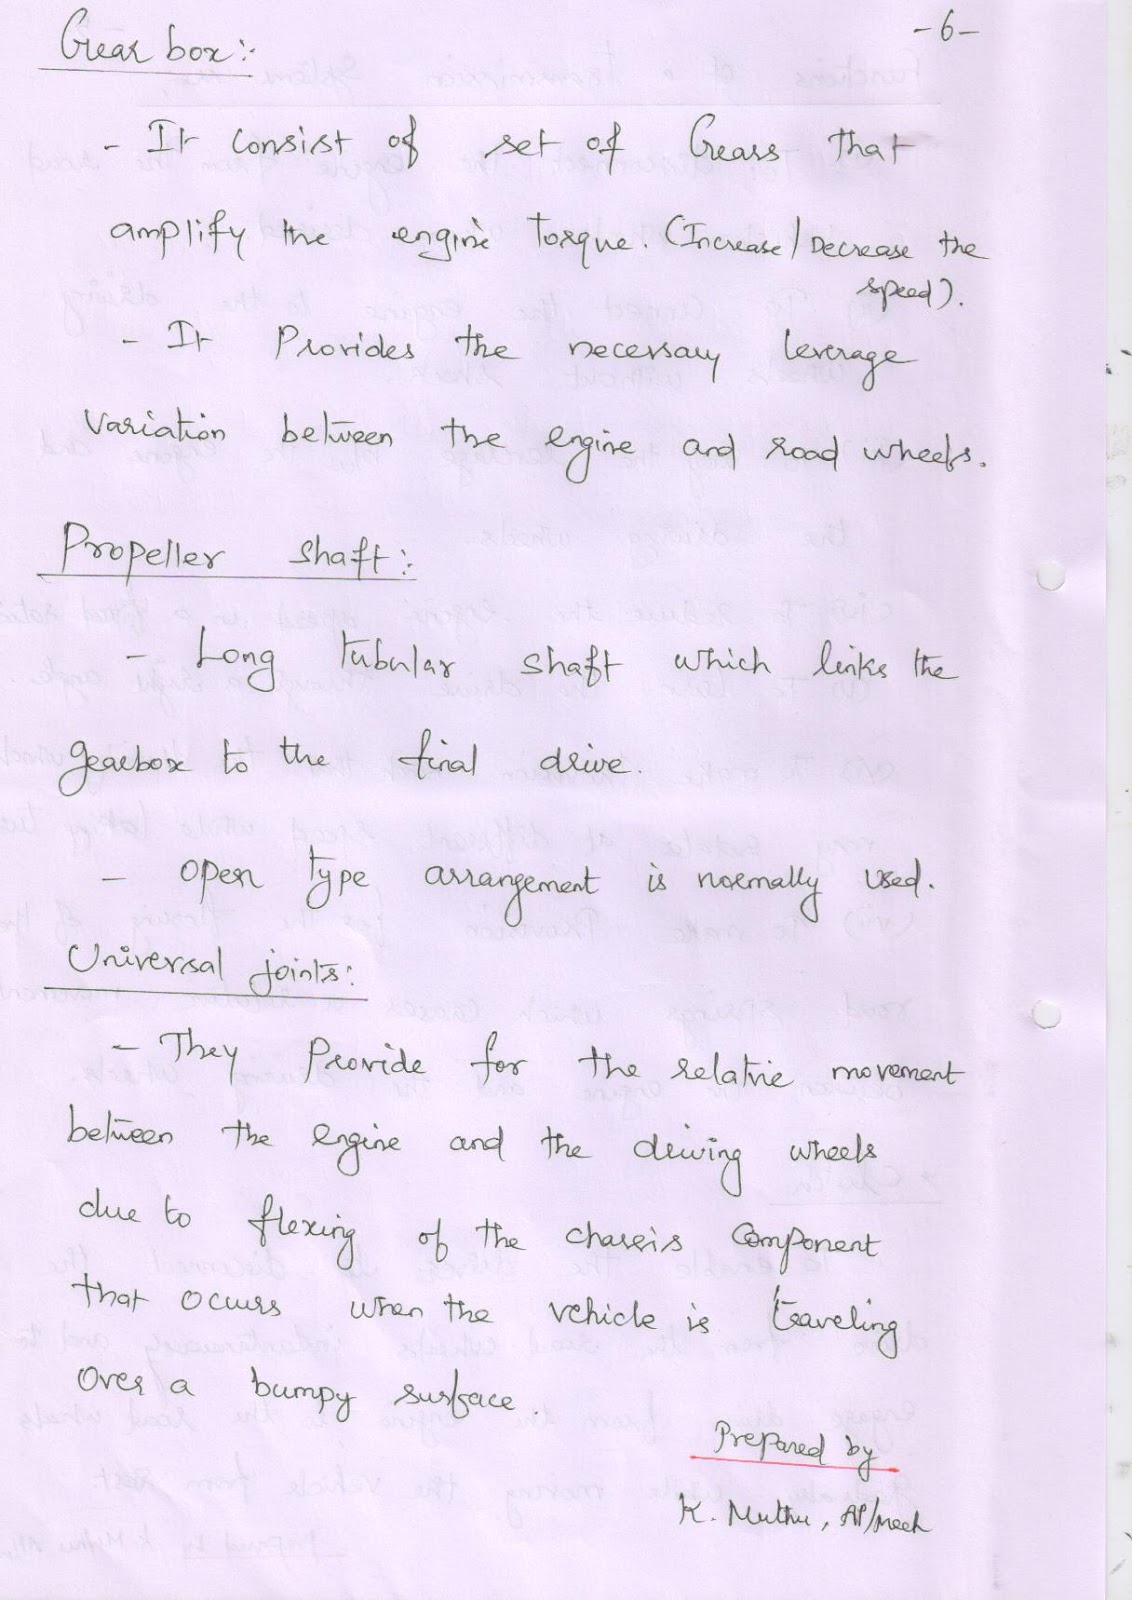 -6-
Gear box:-
- It consist of set of Gears that
amplify the engine torque. (Increase/Decrease the
speed).
- It Provides the necessary leverage
variation between the engine and road wheels.
Propeller shaft:-
- Long tubular shaft which links the
gearbox to the final drive.
- Open type arrangement is normally used.
Universal joints:
- They Provide for the relative movement
between the engine and the driving wheels
due to flexing of the chassis component
that occurs when the vehicle is traveling
over a bumpy surface.
Prepared by
K. Muthu, AP/Mech